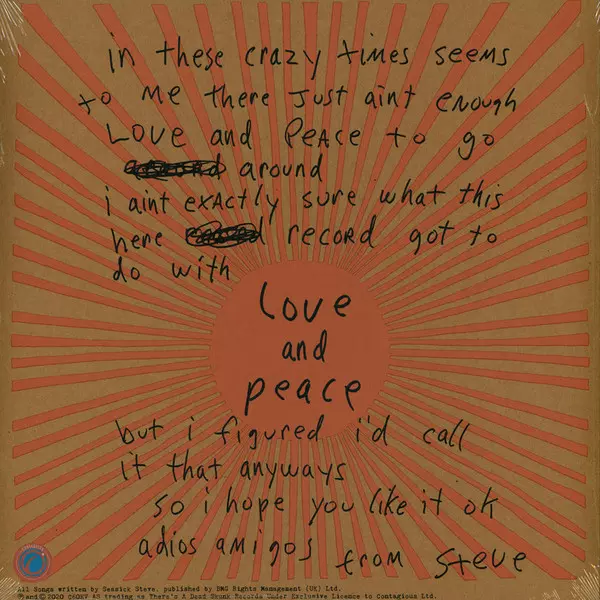 in these crazy times seems
to me there just aint enough
LOVE and PEACE to go
around
i aint exactly sure what this
here record got to
do with
Love
and
peace
but i figured i'd call
it that anyways
so i hope you like it ok
adios amigos from Steve
All Songs written by Seasick Steve, published by BMG Rights Management (UK) Ltd.
℗and©2020 There's A Dead Skunk Records Under Exclusive Licence to Contagious Ltd.